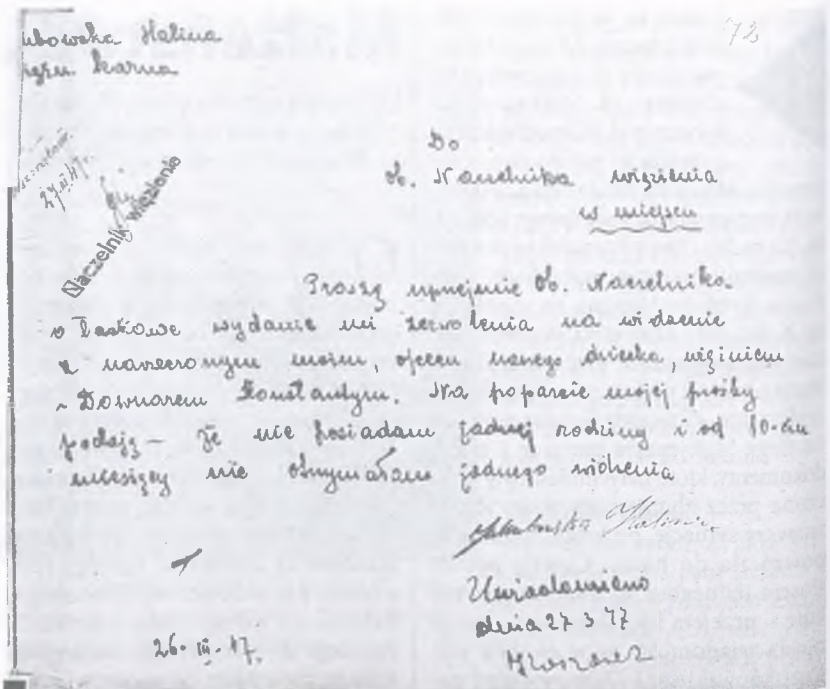 ubowska Halina
karna
72
27.III.47.
Naczelnik więzienia
Do
ob. Naczelnika więzienia
w miejscu
Proszę uprzejmie Ob. Naczelnika
o łaskawe wydanie mi zezwolenia na widzenie
z narzeczonym moim, ojcem mojego dziecka, więźniem
- Downarem Konstantym. Na poparcie mojej prośby
podaję - że nie posiadam żadnej rodziny i od 10-ciu
miesięcy nie otrzymałam żadnego widzenia
Halina
26. III. 47.
dnia 27 3 47